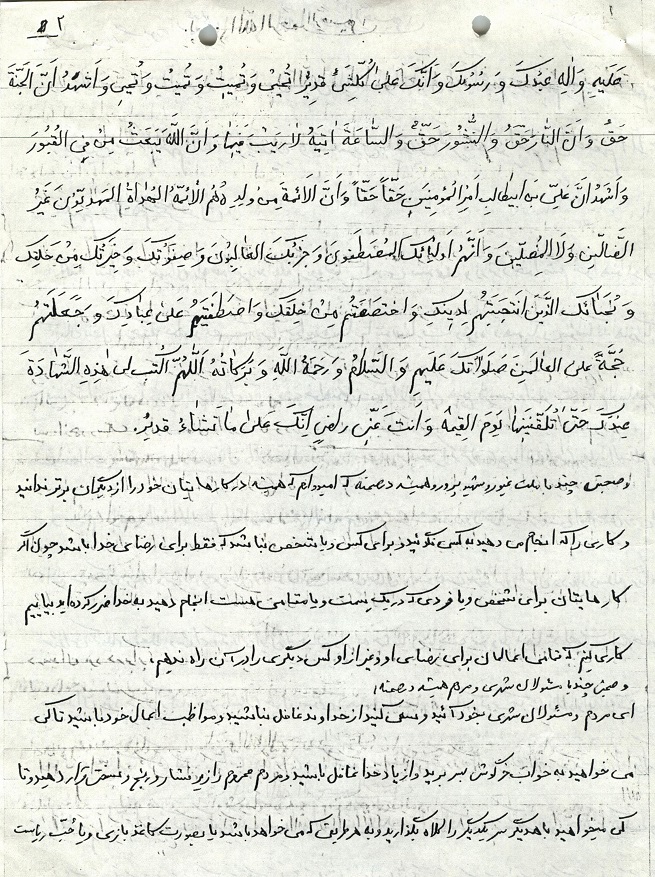 ۲
بسم الله الرحمن الرحیم
عَلَیهِ وَالِهِ عَبدُکَ وَ رَسُولُکَ وَ اَنَّکَ عَلی کُلِّشَیٍ قَدیرٌ تُحیی وَ تُمیتُ وَ تُمیتُ وَ تُحیی وَ اَشهَدُ اَنَّ الجَنَّةَ
حَقٌّ وَ اَنَّ النّارَ حَقٌّ وَ النُّشُورَ حَقٌّ وَ السّاعَةَ اتِیَةٌ لا رَیبَ فیها وَ اَنَّ اللهَ یَبعَثُ مَن فِی القُبُورِ
وَ اَشهَدُ اَنَّ عَلِیَّ بنَ ابیطالِبٍ اَمیرُ المُؤمِنینَ حَقّاً حَقّاً وَ اَنَّ الاَئِمَّةَ مِن وُلدِهِ هُمُ الاَئِمَّةُ الهُداةُ المَهدِیّینَ غَیرُ
الضّالّینَ وَ لاَ المُضِلّینَ وَ اَنَّهُم اَولِیائُکَ المُصطَفَونَ وَ حِزبُکَ الغالِبُونَ وَ صِفوَتُکَ وَ خِیَرَتُکَ مِن خَلقِکَ
وَ نُجَبائُکَ الَّذینَ انتَجَبتَهُم لِدینِکَ وَ اختَصَصتَهُم مِن خَلقِکَ وَ اصطَفَیتَهُم عَلی عِبادِکَ وَ جَعَلتَهُم
حُجَّةً عَلَی العالَمینَ صَلَواتُکَ عَلَیهِم وَ السَّلامُ وَ رَحمَةُ اللهِ وَ بَرَکاتُهُ اَللّهُمَّ اکتُب لی هذِهِ الشَّهادَةَ
عِندَکَ حَتّی تُلَقِّنَنیها یَومَ القِیمَةِ وَ اَنتَ عَنّی راضٍ اِنَّکَ عَلی ما تَشاءُ قَدیرٌ.
و صحبتی چند با ملت غیور و شهید پرور و همیشه در صحنه که امیدوارم که همیشه در کارهایتان خود را از دیگران برتر ندانید
و کاری را که انجام می دهید به کسی نگوئید و برای کس و یا شخصی نباشد که فقط برای رضای خدا باشد چون اگر
کارهایتان برای شخصی و یا فردی که در یک پست و یا مقامی هست انجام دهید به خدا ضرر کرده اید بیاییم
کاری کنیم که تمامی اعمالمان برای رضای او و غیر از او کس دیگری را در آن راه ندهیم،
و صحبتی چند با مسئولان شهری و مردم همیشه در صحنه:
ای مردم و مسئولان شهری بخود آئید و سعی کنید از خداوند غافل نباشید و مواظب اعمال خود باشید تا کی
می خواهید به خواب خرگوشی سر برید و از یاد خدا غافل باشید و مردم محروم را زیر فشار و رنج و قرار دهید و تا
کی میخواهید با همدیگر سر یکدیگر را کلاه بگذارید و به هر طریق که می خواهد باشد یا بصورت کاغذ بازی و یا حب ریاست